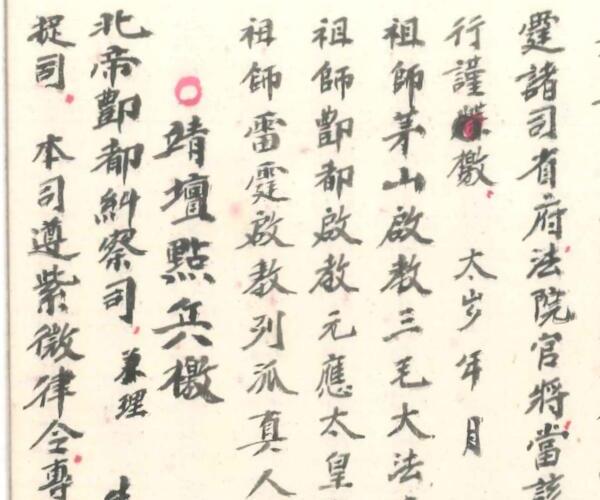 霆諸司有府法院官將當該
行謹檄 太岁年月
祖師茅山啟教三毛大法
祖師酆都啟教元應太皇
祖師雷霆啟教列派真人
靖壇點兵檄
北帝酆都糾察司 兼理
捉司 本司遵紫微律令專